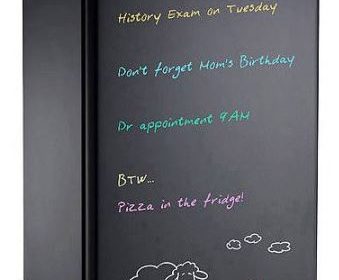 History Exam on Tuesday
Don't forget Mom's Birthday
Dr appointment 9AM
BTW...
Pizza in the fridge!